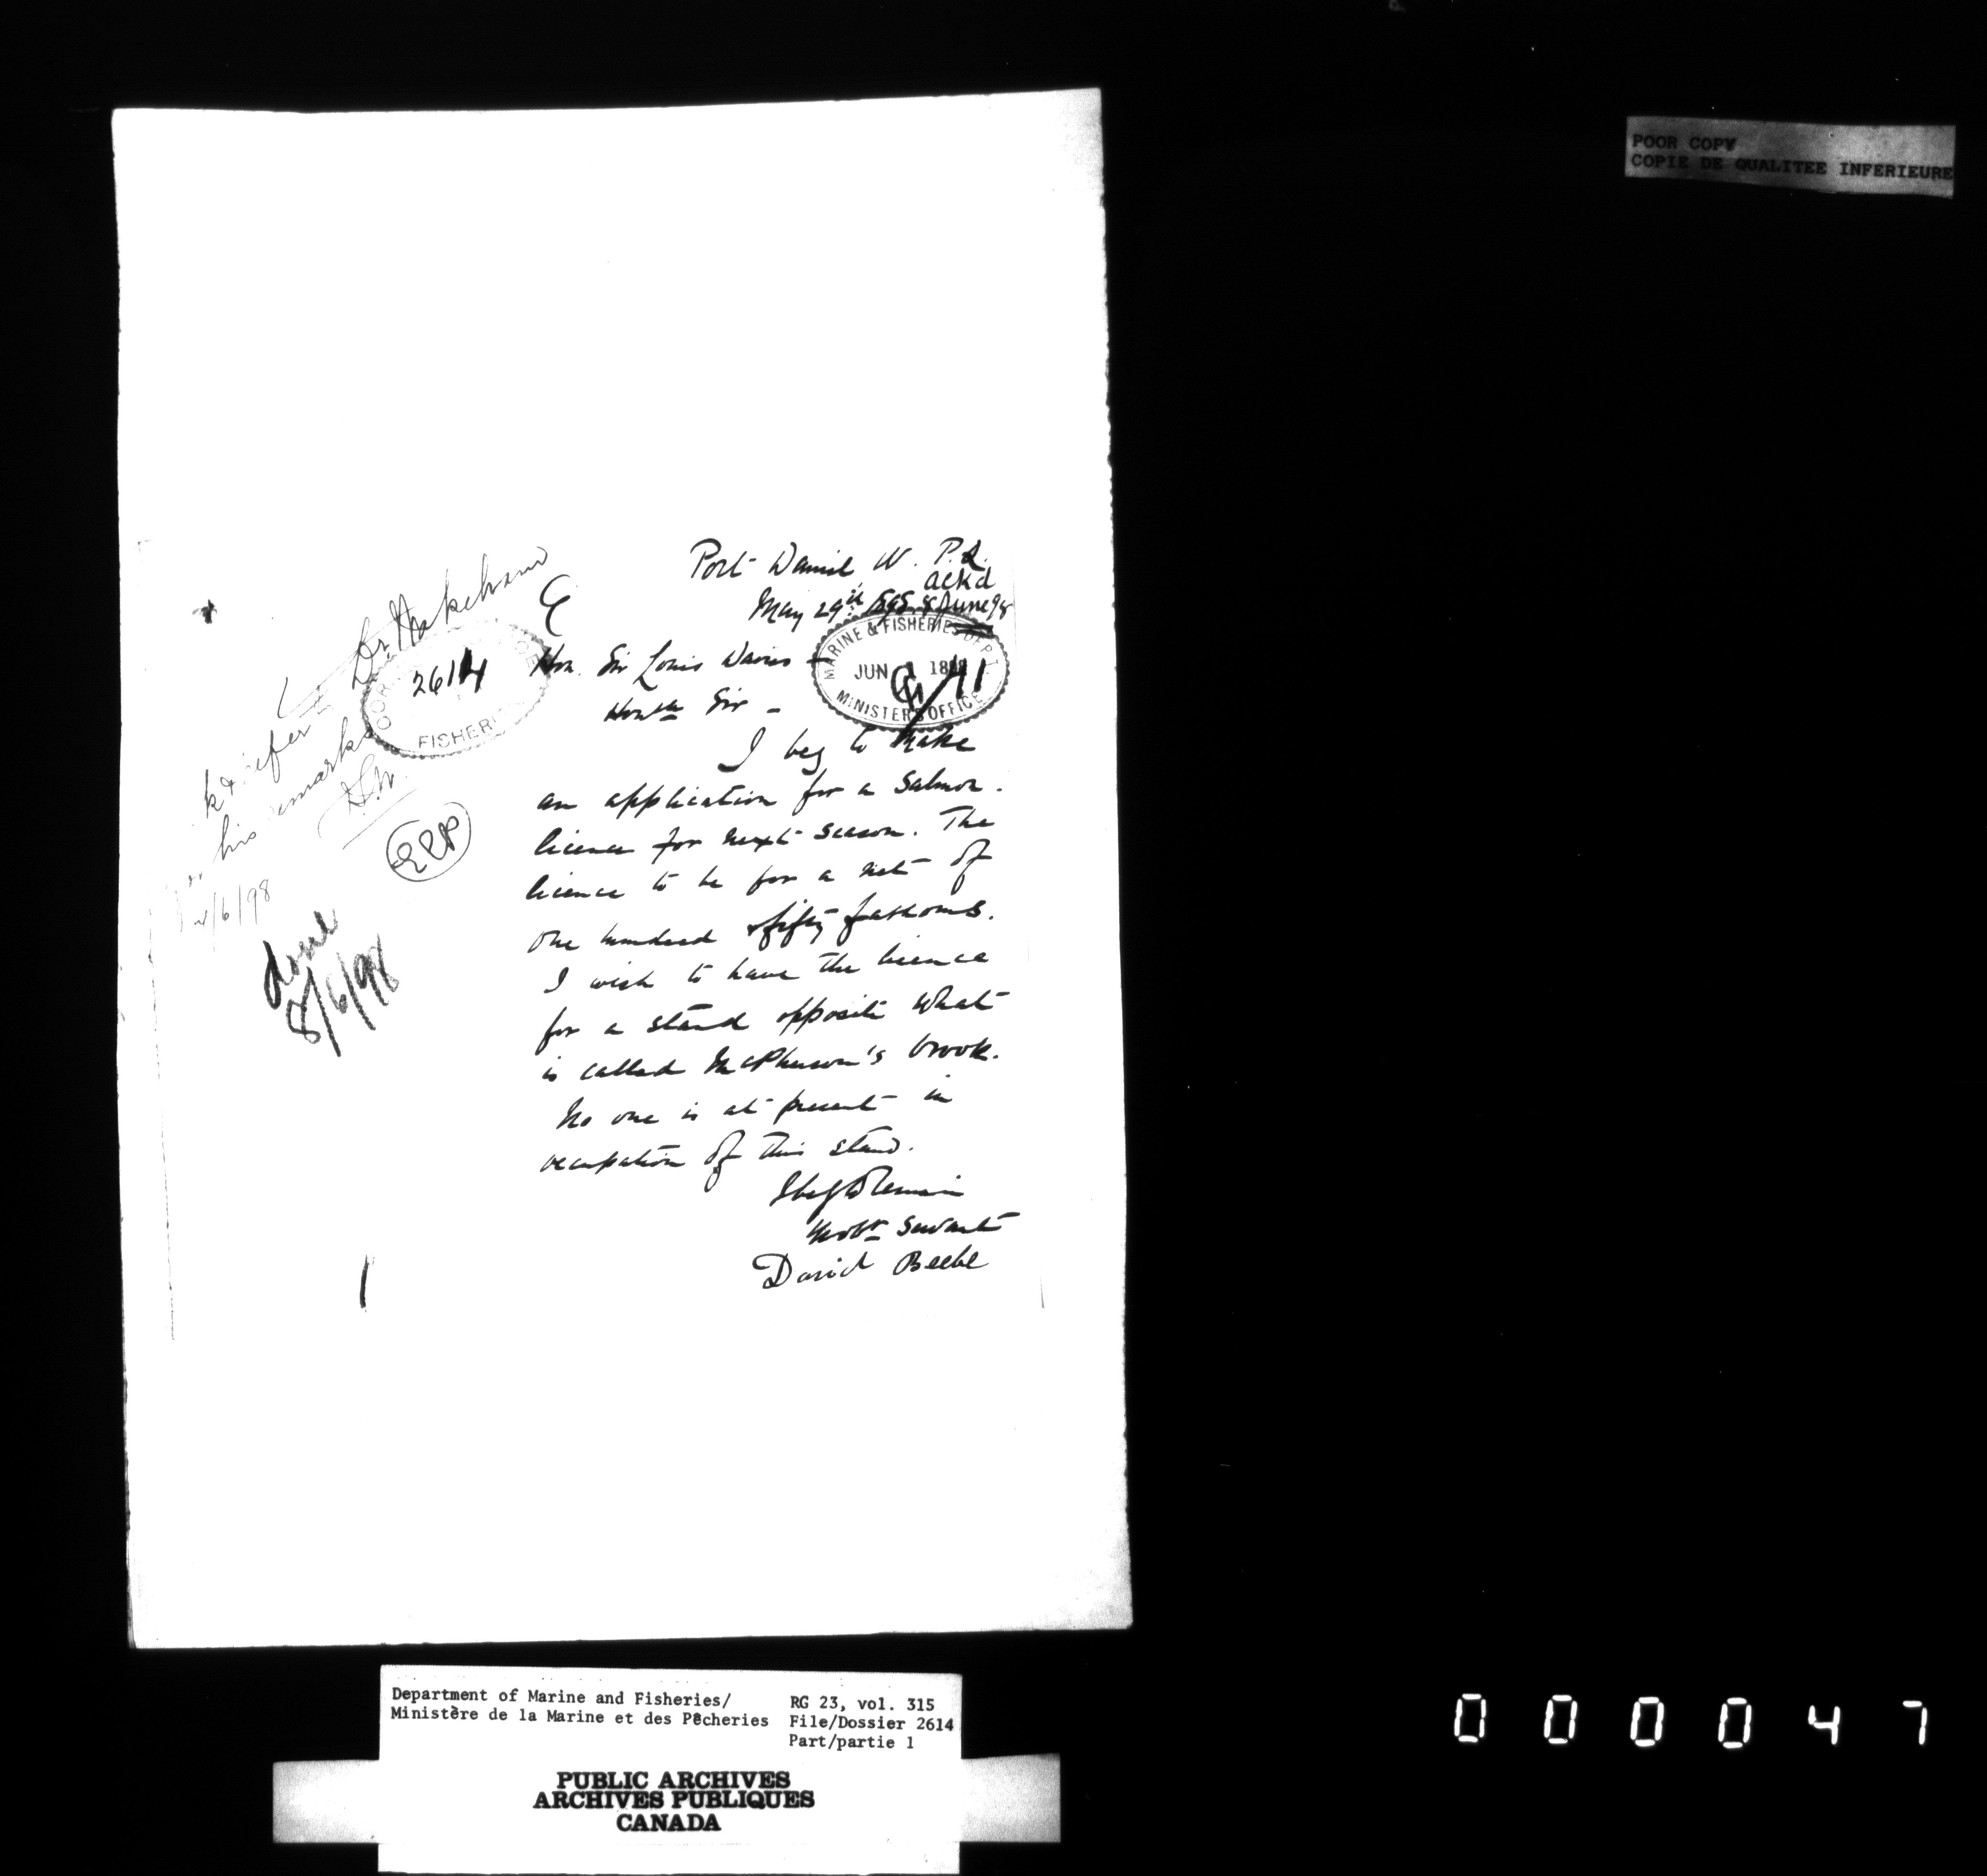 POOR COPY
COPIE DE QUALITEE INFERIEURE
Port Daniel W. P.Q.
ackd
May 29th 1898 8 June 98
Dr. Wakeham
2614
FISHERI
Hon. Sir Louis Davies -
MARINE & FISHERIES DEPT
JUN 1 1898
MINISTERS OFFICE
Honble Sir -
refer
his remarks
I beg to make
an application for a salmon.
licence for next season. The
licence to be for a net of
one hundred & fifty fathoms.
I wish to have the licence
for a stand opposite what
is called McPherson's brook.
No one is at present in
occupation of this stand.
I beg to remain
Your obt servant
David Beebe
/6/98
done
8/6/98
Department of Marine and Fisheries/
Ministère de la Marine et des Pêcheries
RG 23, vol. 315
File/Dossier 2614
Part/partie 1
PUBLIC ARCHIVES
ARCHIVES PUBLIQUES
CANADA
000047